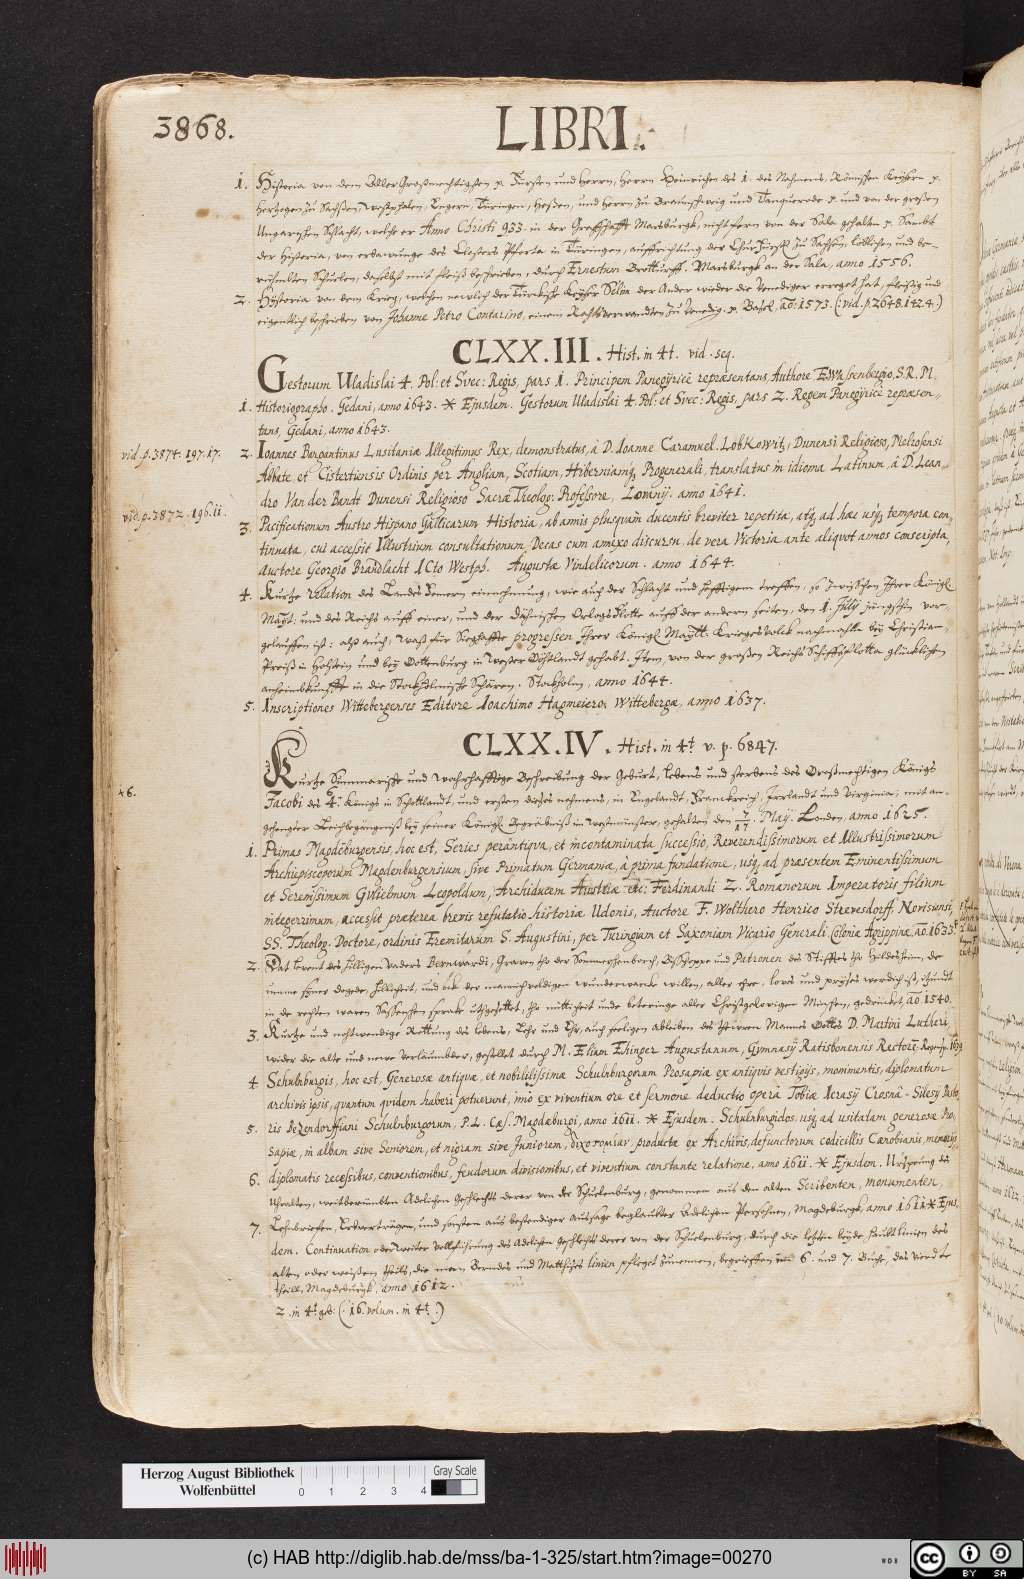 3868.
LIBRI.
1. Historia von dem Aller Großmechtigsten p. Fürsten und Herrn, Herrn Heinrichen des 1. des Nahmens, Römischen Keysern p.
Hertzogen zu Sachssen, Westphalen, Engern, Türingen, Hessen, und Herrn zu Braunschweig und Tangierode p. und von der großen
Ungarischen Schlacht, welche er Anno Christi 933. in der Graffschafft Marsburgk, nicht fern von der Sala gehalten p. Sambt
der Historia, von erbawunge des Closters Pforta in Türingen, auffrichtung der zu Sachsen, löblichen und be-
rühmbten Schulen, daselbst mit fleiß beschrieben, durch Ernestum Brottuff. Marsburgk an der Sala, anno 1556.
2. Historia von dem Krieg, welchen newlich der Türkische Keyser Selim der Ander wieder die Venediger erreget hat, fleissig und
eigentlich beschrieben von Johanne Petro Contarino, einem Rechtsverwandten zu Venedig. p. Basel. ao: 1573. (vid. p. 2648. 142.4.)
CLXX.III. Hist. in 4t. vid. seq.
Gestorum Uladislai 4. Pol: et Svec: Regis, pars 1. Principem Panegyricè repræsentans, Authore E. Wassenbergio, S.R.M.
1. Historiographo. Gedani, anno 1643. * Ejusdem. Gestorum Uladislai 4. Pol: et Svec: Regis, pars 2. Regem Panegyricè repræsen-
tans, Gedani, anno 1643.
vid. p. 3874. 197. 17.
2. Ioannes Bargantinus Lusitaniæ Illegitimus Rex, demonstratus, à D. Ioanne Caramuel. Lobkowitz, Dunensi Religioso, Melrosensi
Abbate, et Cistertiensis Ordinis per Angliam, Scotiam, Hiberniamq, Progenerali, translatus in idioma Latinum, à D. Lean-
dro Van der Bandt Dunensi Religioso Sacræ Theolog: Professore, Lovanij. anno 1641.
vid. p. 3872. 196. 11.
3. Pacificationum Austro Hispano Gallicarum Historia, ab annis plusquam ducentis breviter repetita, atq ad hæc usq tempora con-
tinuata, cui accessit Illustrium consultationum Decas cum annexo discursu, de vera Victoria ante aliquot annos conscripta,
auctore Georgio Brandlacht ICto Westph. Augustæ Vindelicorum. anno 1644.
4. Kurtze relation des Landes Femern einnehmung, wie auch der Schlacht und hefftigem treffen, so zwischen Ihrer Königl.
Maytt: und des Reichs auff einer, und der Dähnischen Orlogs Flotte auff der andern seiten, den 1. July jüngsthin vor-
gelauffen ist: alß auch, Waß für Sieghaffte progressen Ihrer Königl. Maytt: Kriegesvolck nachmahls bey Christian-
Preiß in Holstein und bey Gottenburg in Wester Göhtlandt gehabt. Item, von der großen Reichs Schiffsflotta glücklichen
anheimbkunffte in die Stockholmische Schären. Stockholm, anno 1644.
5. Inscriptiones Wittebergenses Editore Ioachimo Hagmeiero, Wittebergæ, anno 1637.
CLXX.IV. Hist. in 4t. v. p. 6847.
Kurtze Summarische und Wahrhafftige Beschreibung der Geburt, Lebens und sterbens des Großmechtigen Königs
46.
Jacobi des 4. Königs in Schottlandt, und ersten dieses nahmens, in Engelandt, Franckreich, Irrlandt und Virginia, mit an-
gehengter Leichbegängniß bey seiner Königl. Begräbniß in Westmünster, gehalten den 7/17. Maij. Londen, anno 1625.
1. Primas Magdeburgensis, hoc est, Series perantiqua, et incontaminata successio, Reverendissimorum et Illustrissimorum
Archiepiscoporum Magdenburgensium, sive Primatum Germaniæ, à prima fundatione, usq ad præsentem Eminentissimum
et Serenissimum Gulielmum Leopoldum, Archiducem Austriæ etc: Ferdinandi 2. Romanorum Imperatoris filium
integerrimum, accessit præterea brevis refutatio historiæ Udonis, Auctore F. Wolthero Henrico Strevesdorff, Novisiensi,
SS. Theolog. Doctore, ordinis Eremitarum S. Augustini, per Turingiam et Saxoniam Vicario Generali. Coloniæ Agrippinæ, ao. 1633.
2. Dat Levent des Hilligen Vaders Bernwardi, Graven tho der Sommerschenborch, Bisschoppe und Patronen des Stifftes tho Hildesheim, de
umme syner dogede, hillicheit, und ock der mannichvoldigen wunderwercke willen, aller ehre, loves und pryses werdich ist, itzundt
in de rechten waren Sassischen sprake uthgesettet, tho nütticheit unde beteringe aller Christgelovigen Minschen, gedrücket, ao. 1540.
3. Kurtze und nohtwendige Rettung des lebens, Lehr und Ehr, auch seeligen ableiben des thewren Mannes Gottes D. Martini Lutheri,
wider die alte und newe verleumbder, gestellet durch M. Eliam Ehinger Augustanum, Gymnasij Ratisbonensis Rectorē. Regensp. 1639
4. Schulnburgis, hoc est, Generosæ antiquæ, et nobilitissimæ Schulnburgorum Prosapiæ ex antiquis vestigijs, monimentis, diplomatum
archivis ipsis, quantum quidem haberi potuerunt, imò ex viventium ore et sermone deductio operâ Tobiæ Ierasij Crosnâ-Silesij Pasto-
5. ris Bezendorffiani Schulnburgorum, P.L. Cæs. Magdæburgi, anno 1611. * Ejusdem. Schulnburgidos, usq ad usitatam generosæ Pro-
sapiæ, in albam sive Seniorem, et nigram sive Juniorem, productæ ex Archivis, defunctorum codicillis Cænobianis, memorijs
6. diplomatis recessibus, conventionibus, feudorum divisionibus, et viventium constante relatione, anno 1611. * Ejusdem. Ursprung des
Uhralten, weitberümbten Adelichen Geschlechts derer von der Schulenburg, genommen aus den alten Scribenten, monumenten,
7. Lehnbrieffen, Erbverträgen, und sonsten aus bestendiger aussage beglaubter Adelichen Personen, Magdeburgk, anno 1611 * Ejus-
dem. Continuation oder weiter vollführung des Adelichen geschlechts derer von der Schulenburg, durch die letzten beyde haubt linien des
alten oder weißen theils, die man Berndes und Matthises linien pfleget zunennen, begrieffen im 6. und 7. Buche, das vierdte
theill, Magdeburgk, anno 1612.
2. in 4t. geb: (16. volum. in 4t.)
Herzog August Bibliothek
Wolfenbüttel
0 1 2 3 4
Gray Scale
(c) HAB http://diglib.hab.de/mss/ba-1-325/start.htm?image=00270
WDB
cc BY SA